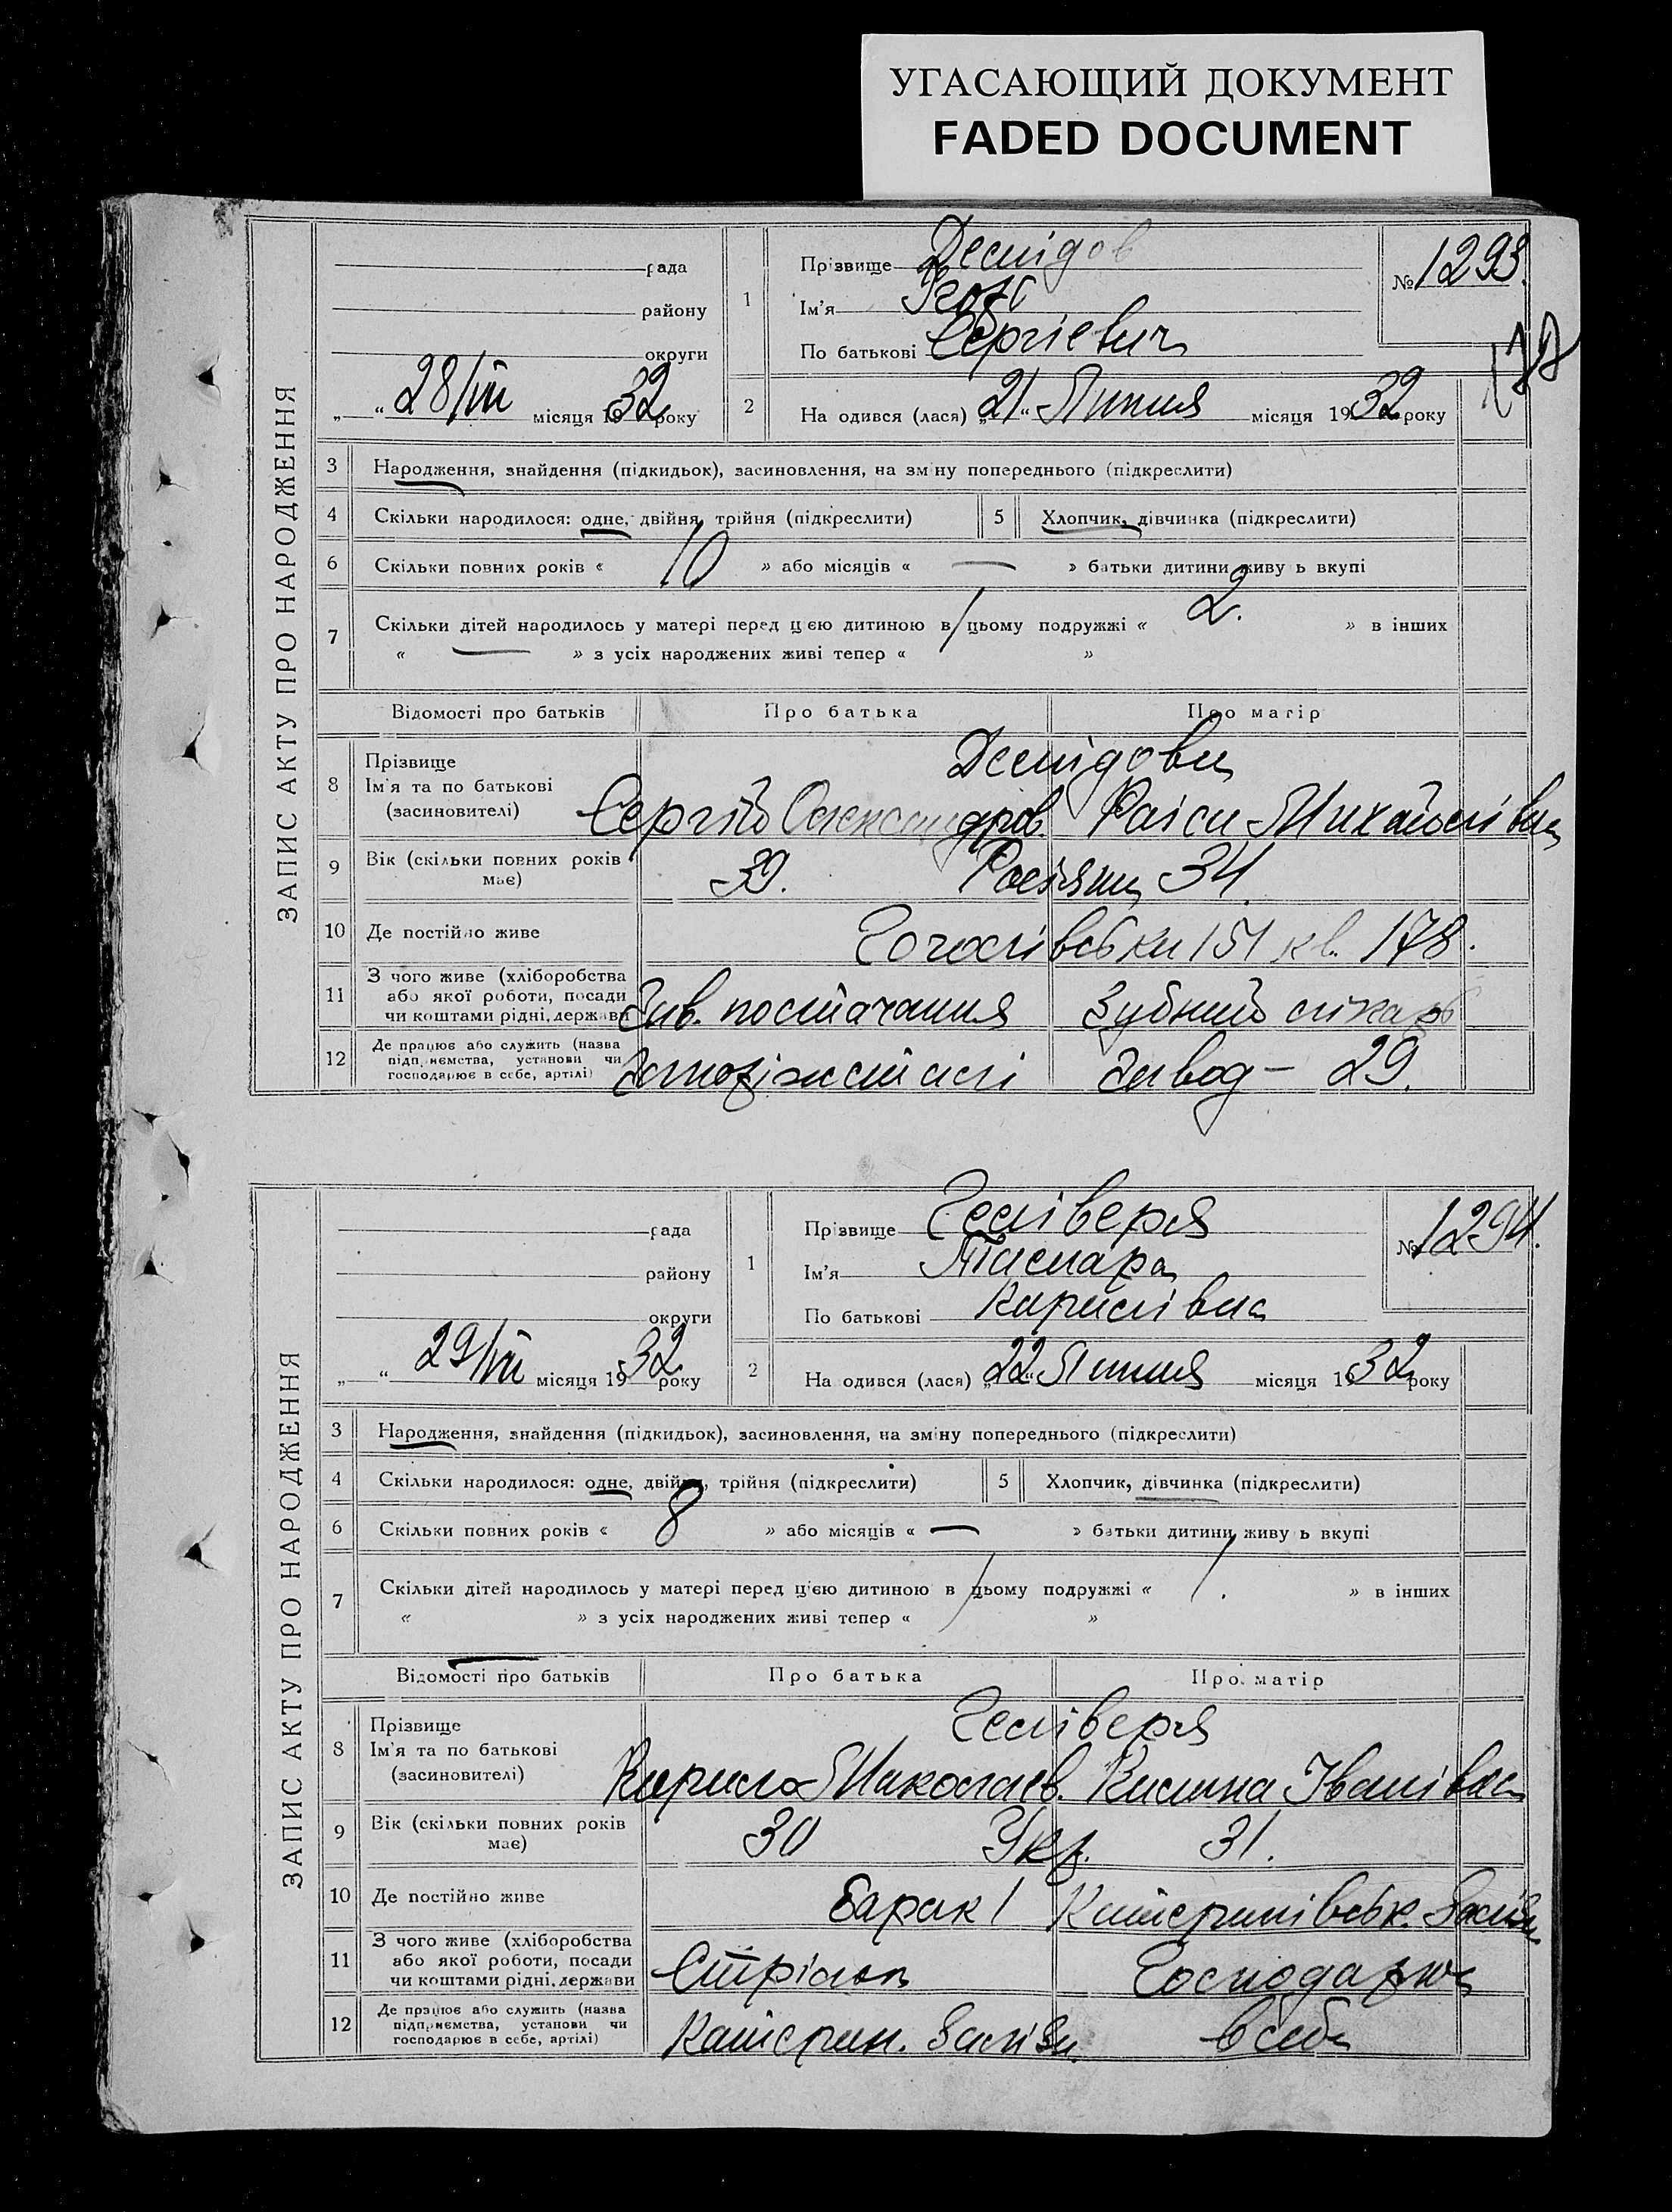 УГАСАЮЩИЙ ДОКУМЕНТ
FADED DOCUMENT
ЗАПИС АКТУ ПРО НАРОДЖЕННЯ
рада
району
округи
„ “ 28/VII місяця 1932 року
1
Прізвище Демідов
Ім'я
По батькові Сергієвич
№ 1293.
2
На одився (лася) „21“ Липня місяця 1932 року
3 Народження, знайдення (підкидьок), засиновлення, на зміну попереднього (підкреслити)
4 Скільки народилося: одне, двійня, трійня (підкреслити) 5 Хлопчик, дівчинка (підкреслити)
6 Скільки повних років « 10 » або місяців « — » батьки дитини живу ь вкупі
7 Скільки дітей народилось у матері перед цією дитиною в цьому подружжі « 2. » в інших
« — » з усіх народжених живі тепер « »
Відомості про батьків Про батька Про матір
8 Прізвище Демідови
Ім'я та по батькові
(засиновителі)
Сергій Олександров. Раіса Михайлівна
9 Вік (скільки повних років має) 39. Росіяни 34.
10 Де постійно живе 151 кв. 178.
11 З чого живе (хліборобства або якої роботи, посади чи коштами рідні, держави Зав. постачання Зубний лікарь
12 Де працює або служить (назва підприємства, установи чи господарює в себе, артілі) Завод — 29.
ЗАПИС АКТУ ПРО НАРОДЖЕННЯ
рада
району
округи
„ “ 29/VII місяця 1932 року
1
Прізвище Геліверя
Ім'я Тамара
По батькові Кирилівна
№ 1294.
2
На одився (лася) „22“ Липня місяця 1932 року
3 Народження, знайдення (підкидьок), засиновлення, на зміну попереднього (підкреслити)
4 Скільки народилося: одне, двійня, трійня (підкреслити) 5 Хлопчик, дівчинка (підкреслити)
6 Скільки повних років « 8 » або місяців « — » батьки дитини живу ь вкупі
7 Скільки дітей народилось у матері перед цією дитиною в цьому подружжі « 1. » в інших
« » з усіх народжених живі тепер « »
Відомості про батьків Про батька Про матір
8 Прізвище Геліверя
Ім'я та по батькові
(засиновителі)
Кирило Миколаєв. Килина Іванівна
9 Вік (скільки повних років має) 30 Укр. 31.
10 Де постійно живе Барак 1 Катеринівськ. Заліз.
11 З чого живе (хліборобства або якої роботи, посади чи коштами рідні, держави Стрілок Господарює
12 Де працює або служить (назва підприємства, установи чи господарює в себе, артілі) Катерин. Заліз. в себе